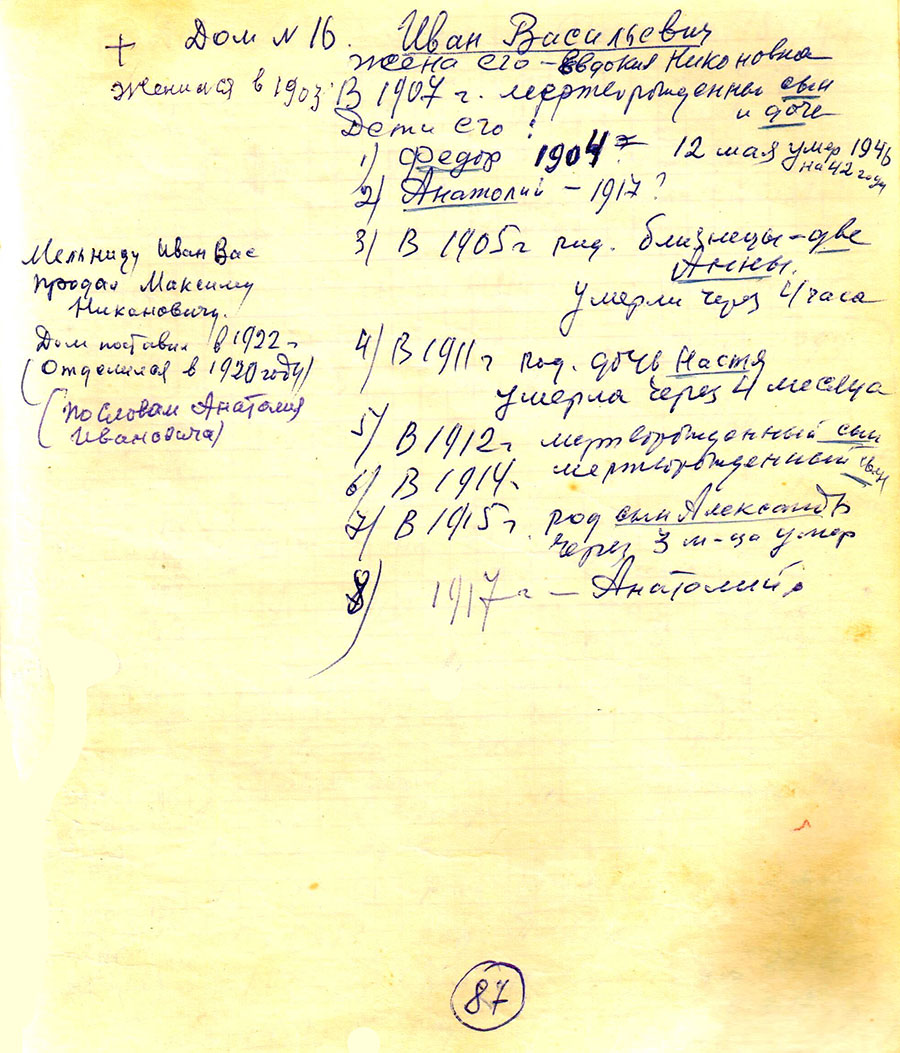 + Дом № 16. Иван Васильевич
жена его – Евдокия Никоновна
Женился в 1903 В 1907 г. мертворожденны сын
и дочь
Дети его:
1) Федор 1904 – 12 мая умер 1946
на 42 году
2) Анатолий – 1917?
3) В 1905 г род. близнецы – две
Анны.
умерли через 4 часа
Мельницу Иван Вас
продал Максиму
Никановичу.
Дом поставил в 1922 г
(Отделился в 1920 году)
(по словам Анатолия
Ивановича)
4) В 1911 г род. дочь Настя
умерла через 4 месяца
5) В 1912 г мертворожденный сын
6) В 1914 г. мертворожденный сын
7) В 1915 г. род сын Александъ
через 3 м-ца умер
8) 1917 г – Анатолий.
87